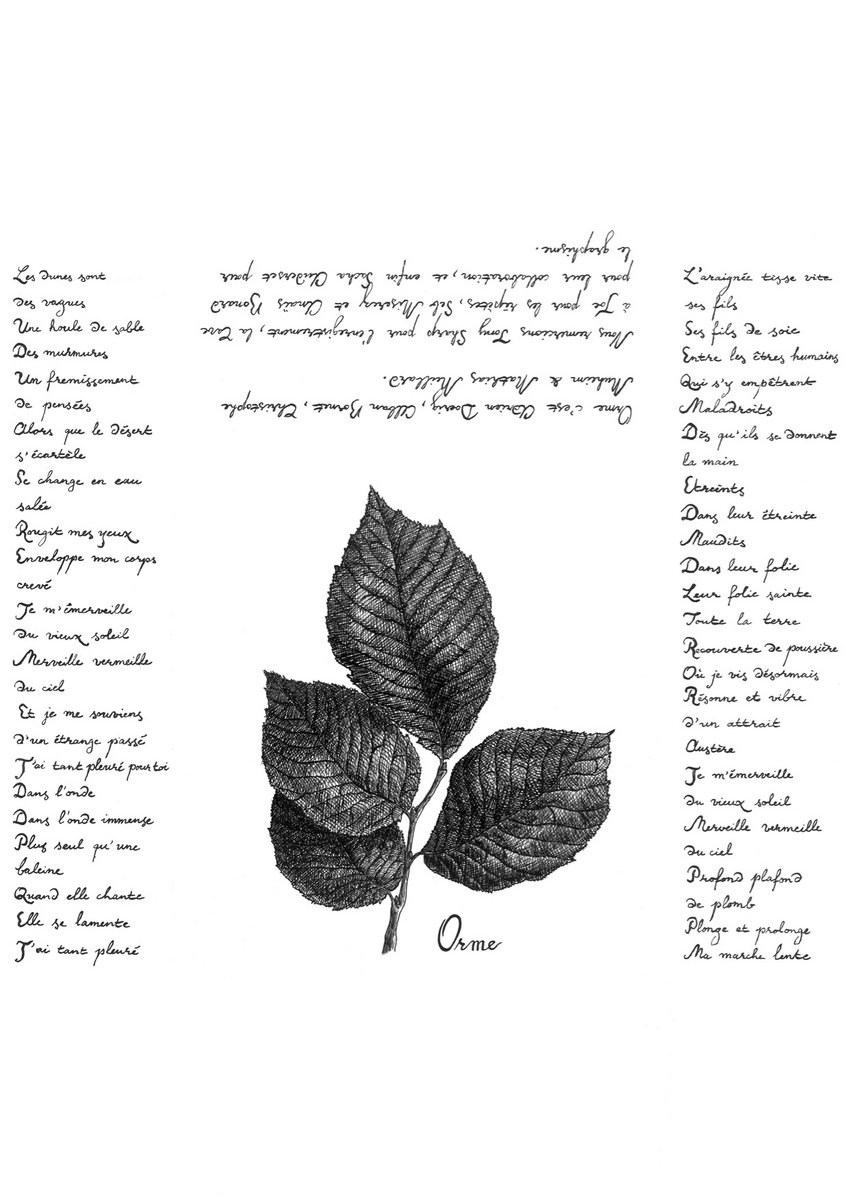 Les dunes sont
des vagues
Une houle de sable
Des murmures
Un fremissement
de pensées
Alors que le désert
s'écartèle
Se change en eau
salée
Rougit mes yeux
Enveloppe mon corps
crevé
Je m'émerveille
du vieux soleil
Merveille vermeille
du ciel
Et je me souviens
d'un étrange passé
J'ai tant pleuré pour toi
Dans l'onde
Dans l'onde immense
Plus seul qu'une
baleine
Quand elle chante
Elle se lamente
J'ai tant pleuré
Orme c'est Adrien Doerig, Alban Bornet, Christophe
Muheim & Mathias Meillard.
Nous remercions Tony Sharp pour l'enregistrement, la Cave
à Joe pour les répètes, Seb Miserez et Anaïs Bonard
pour leur collaboration, et enfin Sacha Cuiderset pour
le graphisme.
Orme
L'araignée tisse vite
ses fils
Ses fils de soie
Entre les êtres humains
Qui s'y empêtrent
Maladroits
Dès qu'ils se donnent
la main
Etreints
Dans leur étreinte
Maudits
Dans leur folie
Leur folie sainte
Toute la terre
Recouverte de poussière
Où je vis désormais
Résonne et vibre
d'un attrait
Austère
Je m'émerveille
du vieux soleil
Merveille vermeille
du ciel
Profond plafond
de plomb
Plonge et prolonge
Ma marche lente